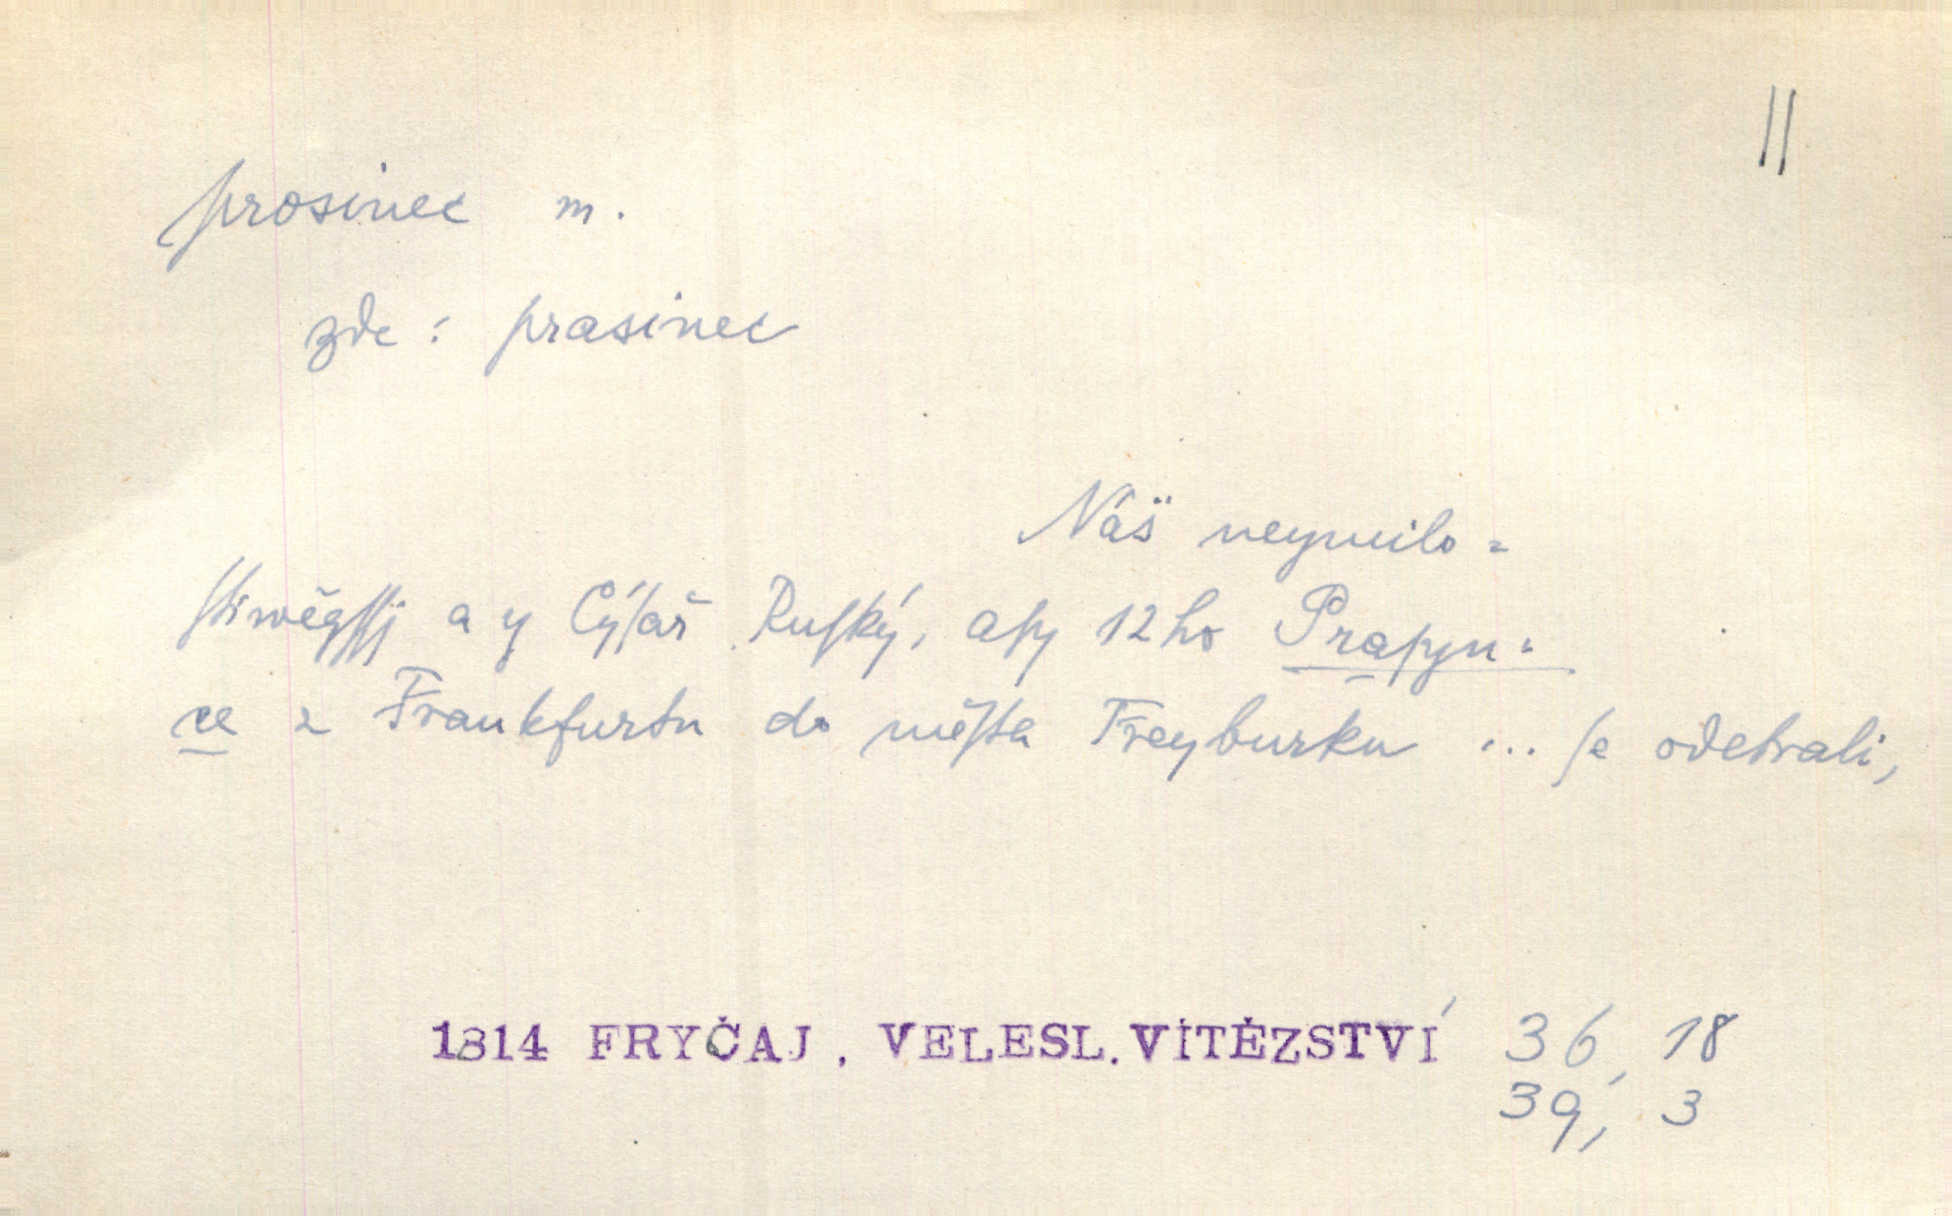 ||
prosinec m.
zde: prasinec
Náš neymilo=
ſtiwěgſſj a y Cýſař Ruſký, aſy 12ho Praſyn=
ce z Frankfurtu do měſta Freyburku ... ſe odebrali,
1814 FRYČAJ, VELESL. VÍTĚZSTVÍ 36, 18
39, 3